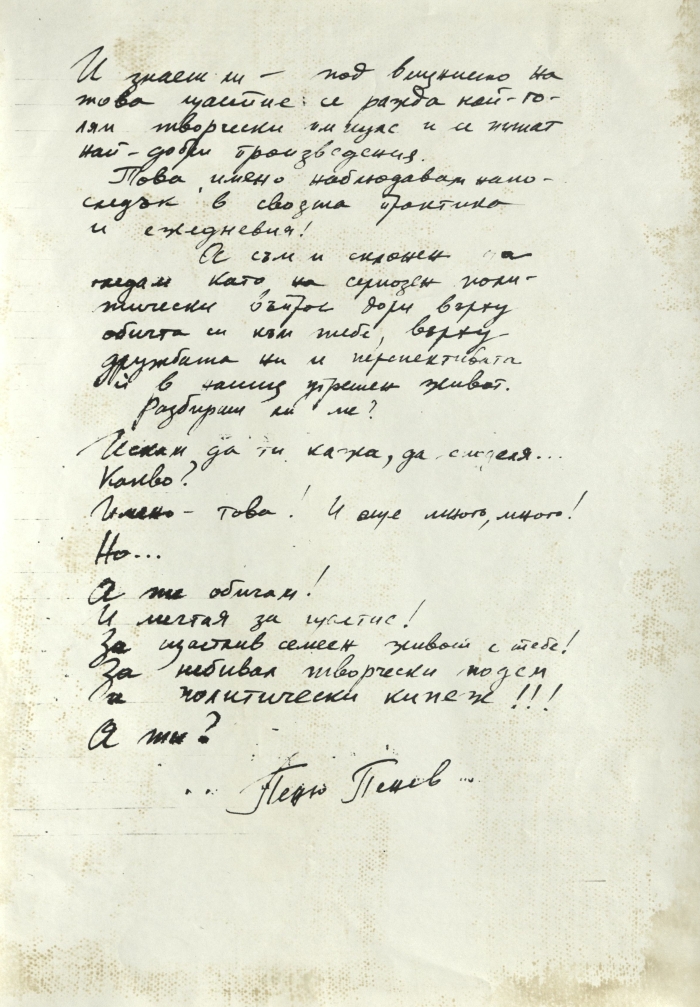 И знаеш ли – под влияние на
това щастие се ражда най-го-
лям творчески импулс и се пишат
най-добри произведения.
Това имено наблюдавам напо-
следък в своята практика
и ежедневия!
А съм и склонен да
гледам като на сериозен поли-
тически въпрос дори върху
обичта си към тебе, върху
дружбата ни и перспективата
й в нашия утрешен живот.
Разбираш ли ме?
Искам да ти кажа, да споделя...
Какво?
Имено – това! И още много, много!
Но...
А те обичам!
И мечтая за щастие!
За щастлив семеен живот с тебе!
За небивал творчески подем
и политически кипеж!!!
А ти?
Пеню Пенев